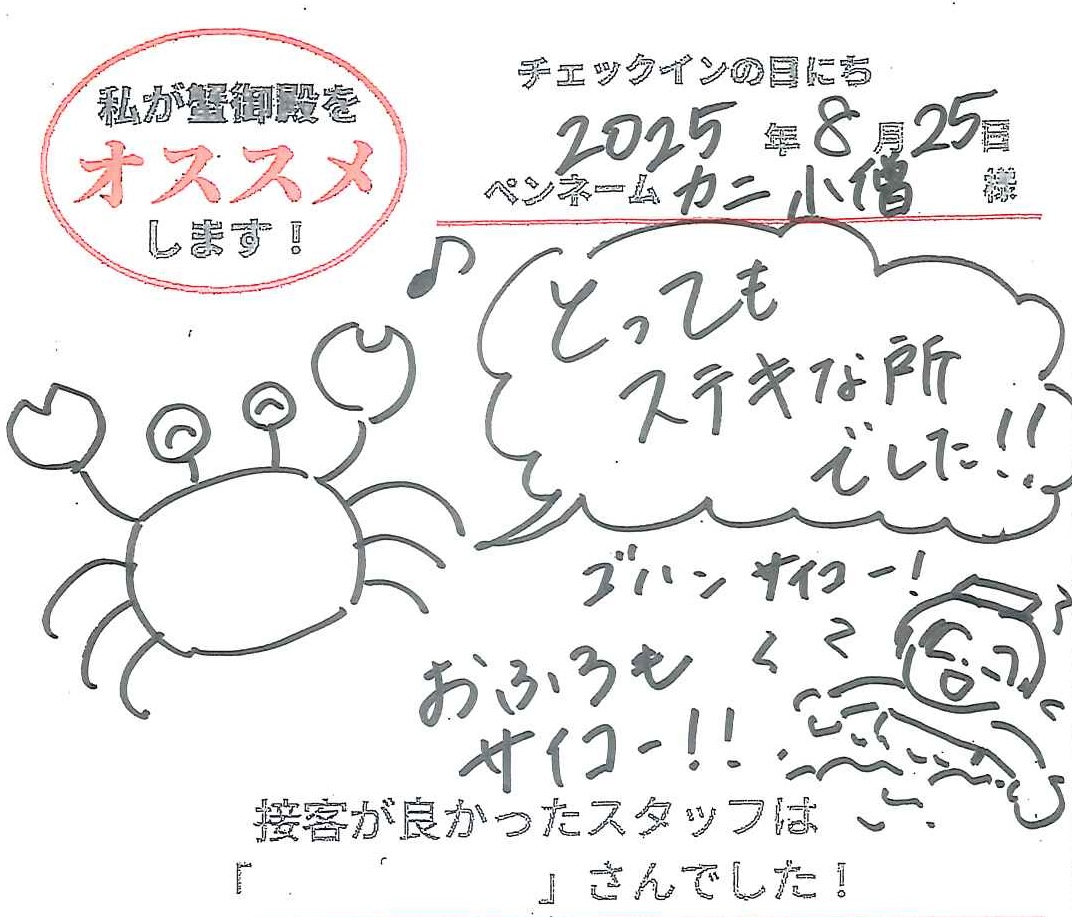 私が蟹御殿を
オススメ
します！
チェックインの日にち
2025年8月25日
ペンネーム カニ小僧 様
とっても
ステキな所
でした!!
ゴハン サイコー!
おふろも
サイコー!!
接客が良かったスタッフは
「　　　　　　」さんでした！